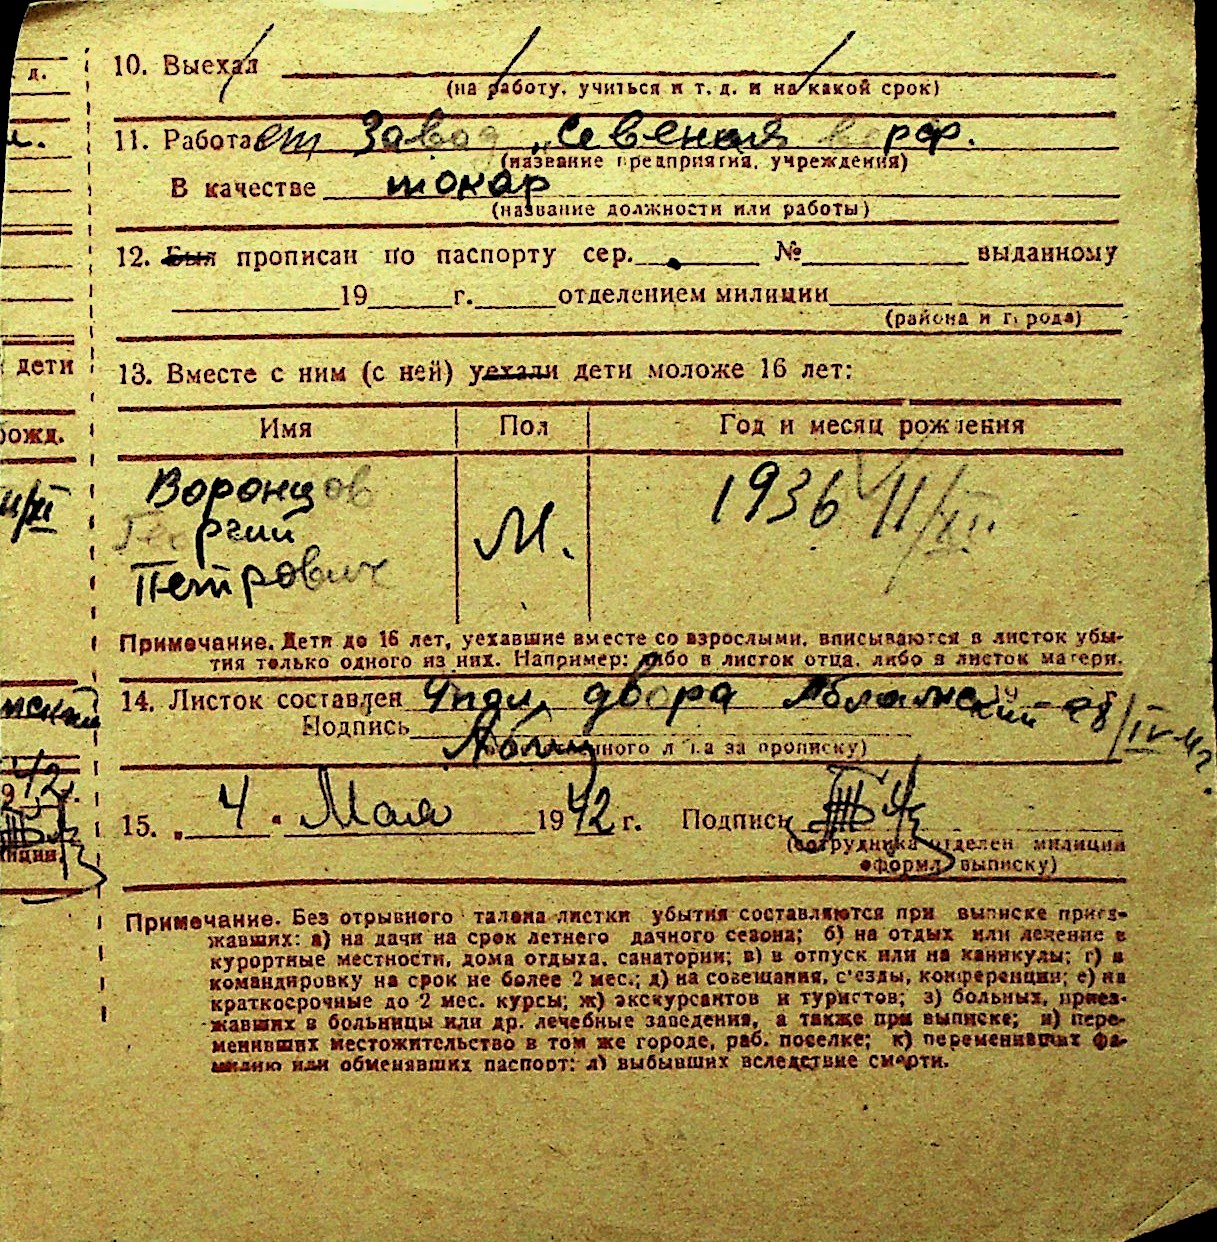 д.
10. Выехал
(на работу, учиться и т. д. и на какой срок)
11. Работает Завод „Севеная верф.
(название предприятия, учреждения)
В качестве токар
(название должности или работы)
12. Был прописан по паспорту сер. № выданному
19 г. отделением милиции
(района и города)
13. Вместе с ним (с ней) уехали дети моложе 16 лет:
дети
Имя Пол Год и месяц рождения
рожд.
Воронцов
Георгий
Петрович
М.
1936 11/XII.
11/XI
Примечание. Дети до 16 лет, уехавшие вместе со взрослыми, вписываются в листок убы-
тия только одного из них. Например: либо в листок отца, либо в листок матери.
14. Листок составлен двора 19 г. 28/IV-42
Подпись
(ответственного лица за прописку)
15. „ 4 " Мая 1942 г. Подпись
(сотрудника отделен милиции
оформл выписку)
942.
Примечание. Без отрывного талона листки убытия составляются при выписке приез-
жавших: а) на дачи на срок летнего дачного сезона; б) на отдых или лечение в
курортные местности, дома отдыха, санатории; в) в отпуск или на каникулы; г) в
командировку на срок не более 2 мес.; д) на совещания, с'езды, конференции; е) на
краткосрочные до 2 мес. курсы; ж) экскурсантов и туристов; з) больных, приез-
жавших в больницы или др. лечебные заведения, а также при выписке; и) пере-
менивших местожительство в том же городе, раб. поселке; к) переменивших фа-
милию или обменявших паспорт; л) выбывших вследствие смерти.